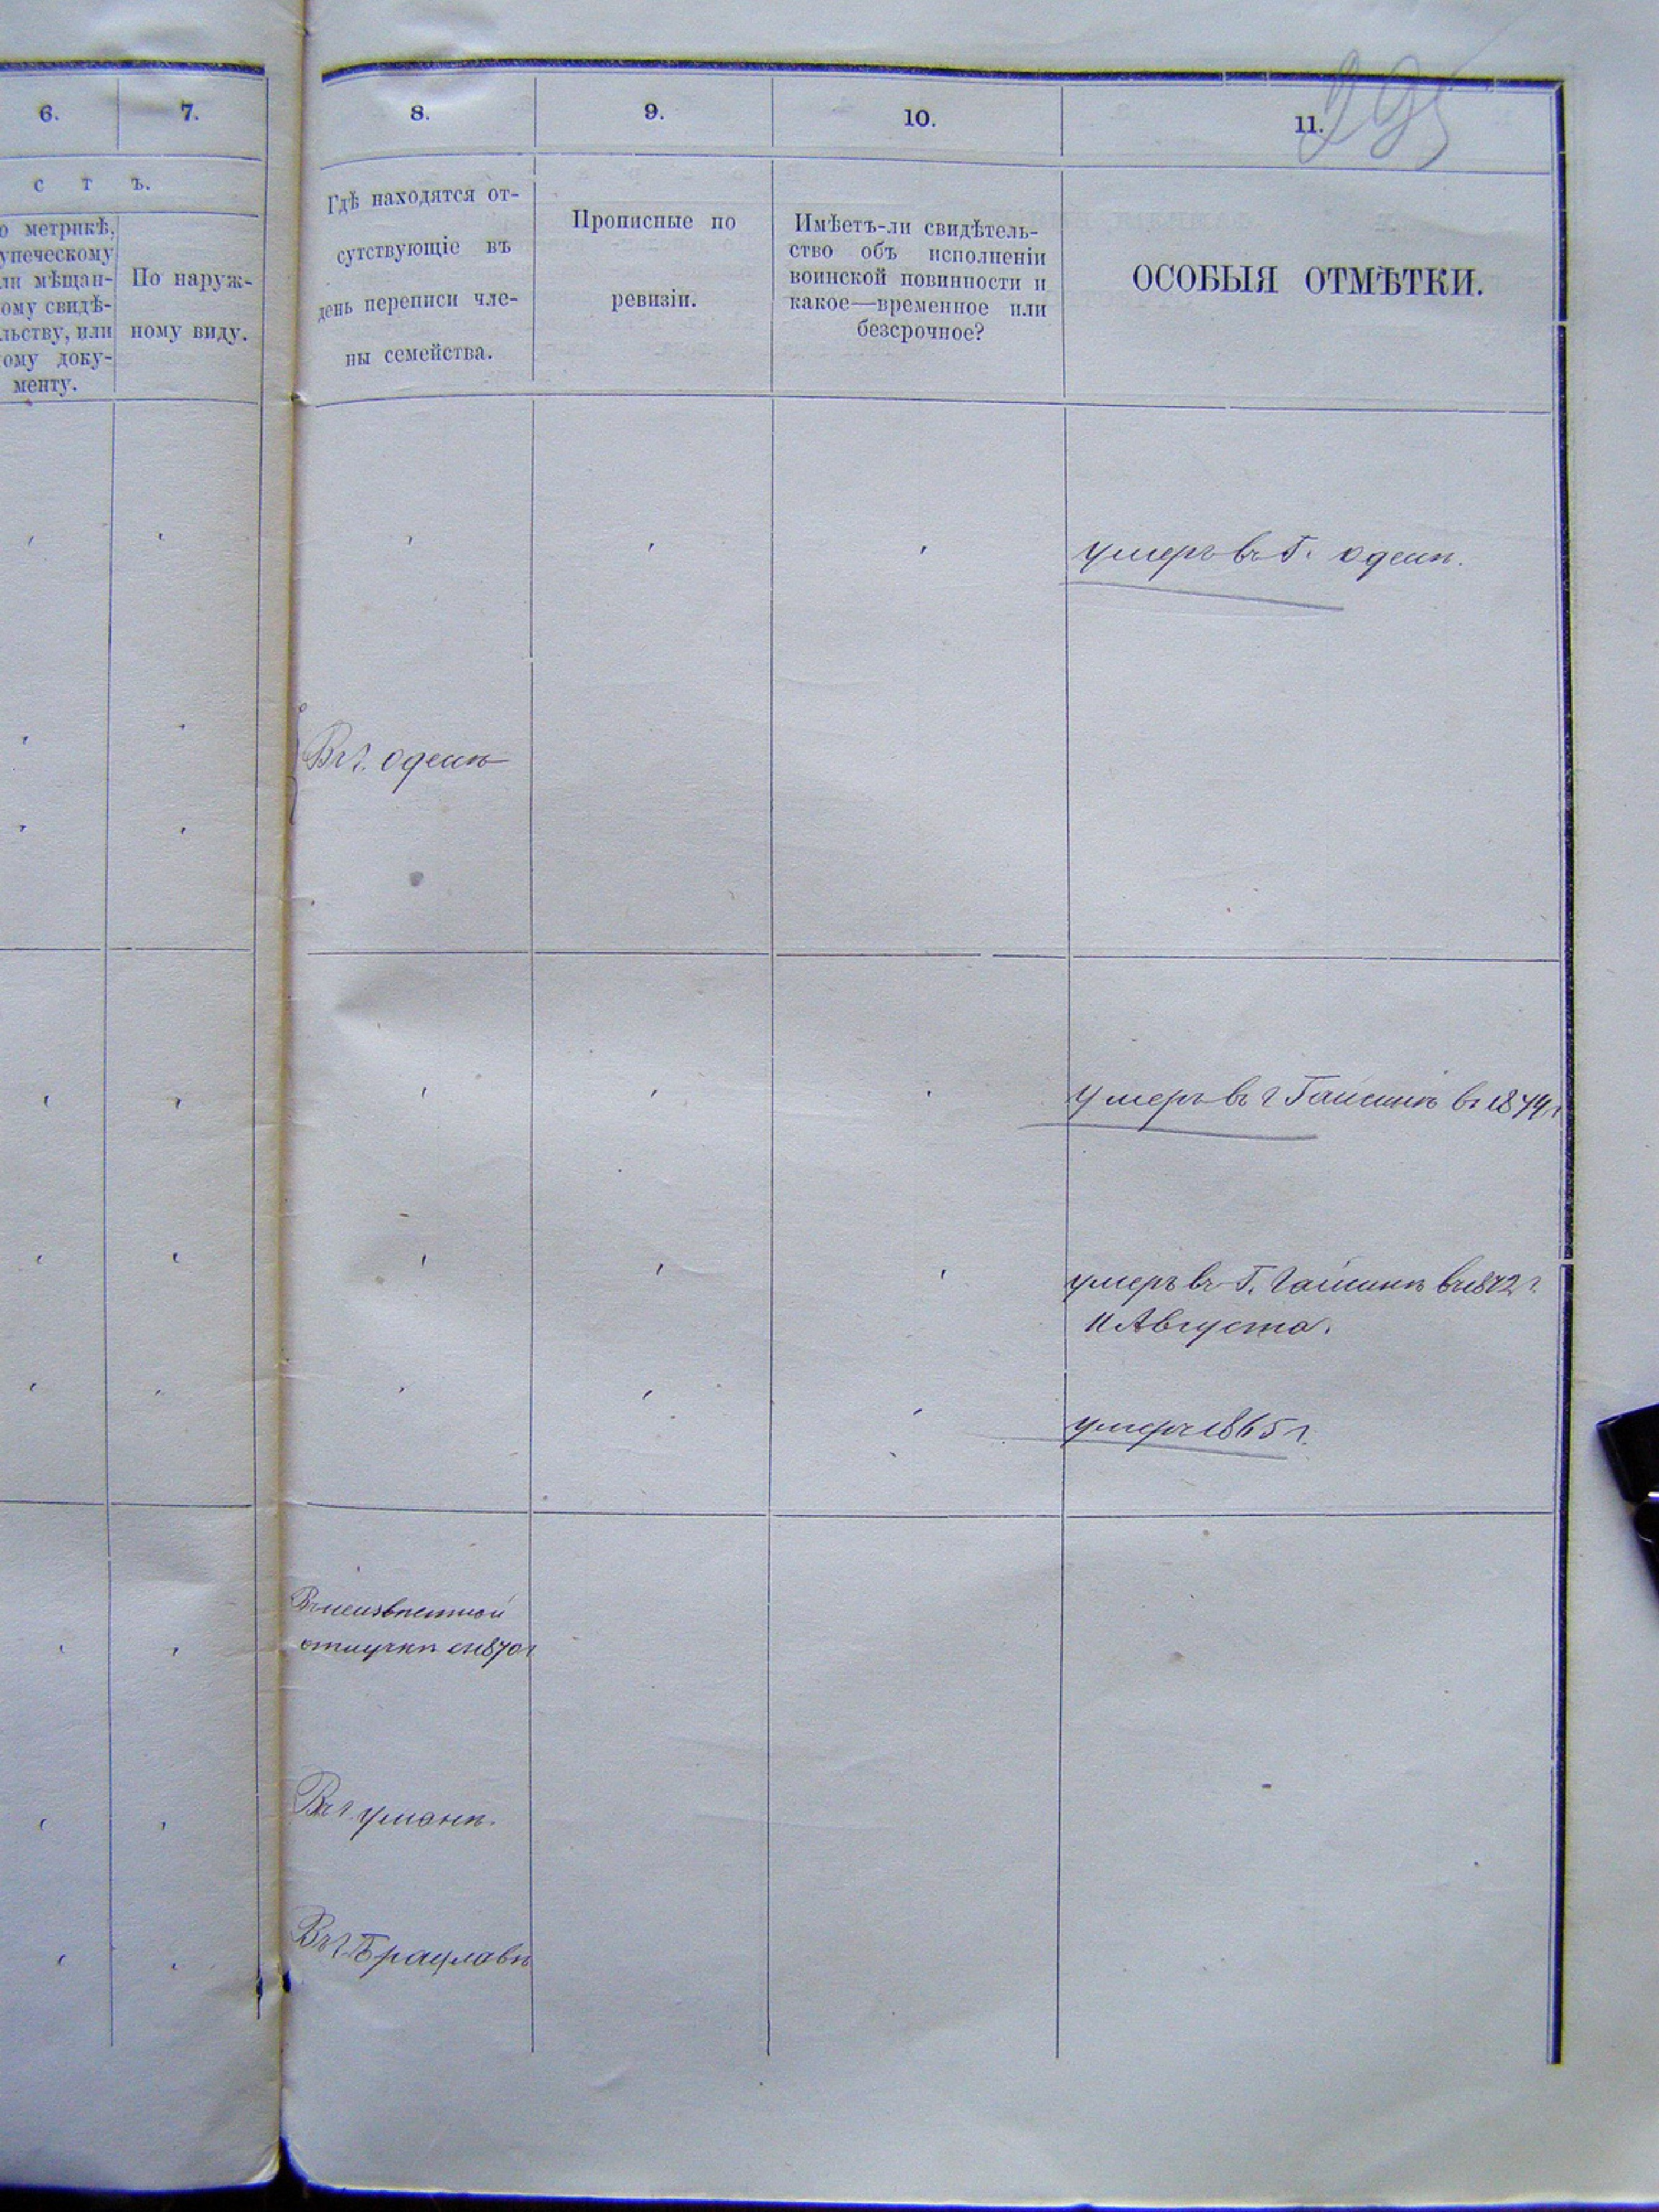 295
6.
7.
8.
9.
10.
11.
с т ъ.
о метрикѣ,
упеческому
ли мѣщан-
ому свидѣ-
льству, или
ому доку-
менту.
По наруж-
ному виду.
Гдѣ находятся от-
сутствующіе въ
день переписи чле-
ны семейства.
Прописные по
ревизіи.
Имѣетъ-ли свидѣтель-
ство объ исполненіи
воинской повинности и
какое—временное или
безсрочное?
ОСОБЫЯ ОТМѢТКИ.
умеръ въ Г. Одесѣ.
Въ г. Одесѣ
Умеръ въ г Гайсинѣ въ 1874 г
умеръ въ Г. Гайсинѣ въ 1872 г.
11 Августа.
умеръ 1865 г.
Въ неизвѣстной
отлучкѣ съ 1870 г
Въ г. Уманѣ.
Въ г. Брацлавѣ